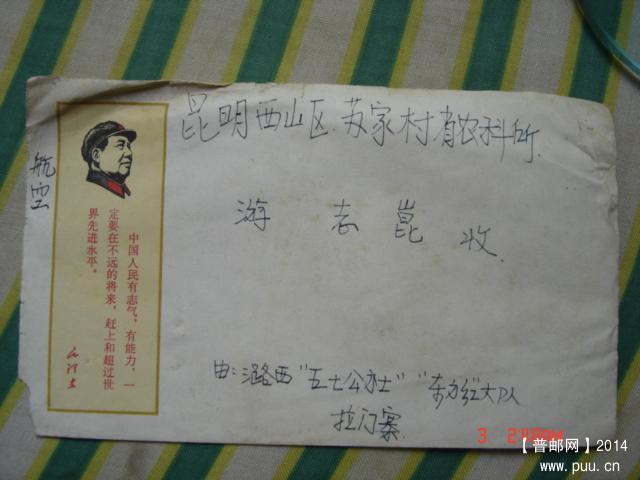 昆明西山区苏家村省农科所.
航空
游志崑 收
中国人民有志气,有能力,一
定要在不远的将来,赶上和超过世
界先进水平。
毛泽东
由:潞西"五七公社""东方红"大队
拉门寨.
【普邮网】2014
www.puu.cn